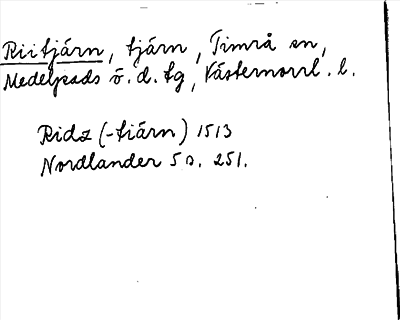 Riitjärn, tjärn, Timrå sn,
Medelpads ö. d. tg, Västernorrl. l.
Ridz (-tiärn) 1513
Nordlander 5 s. 251.